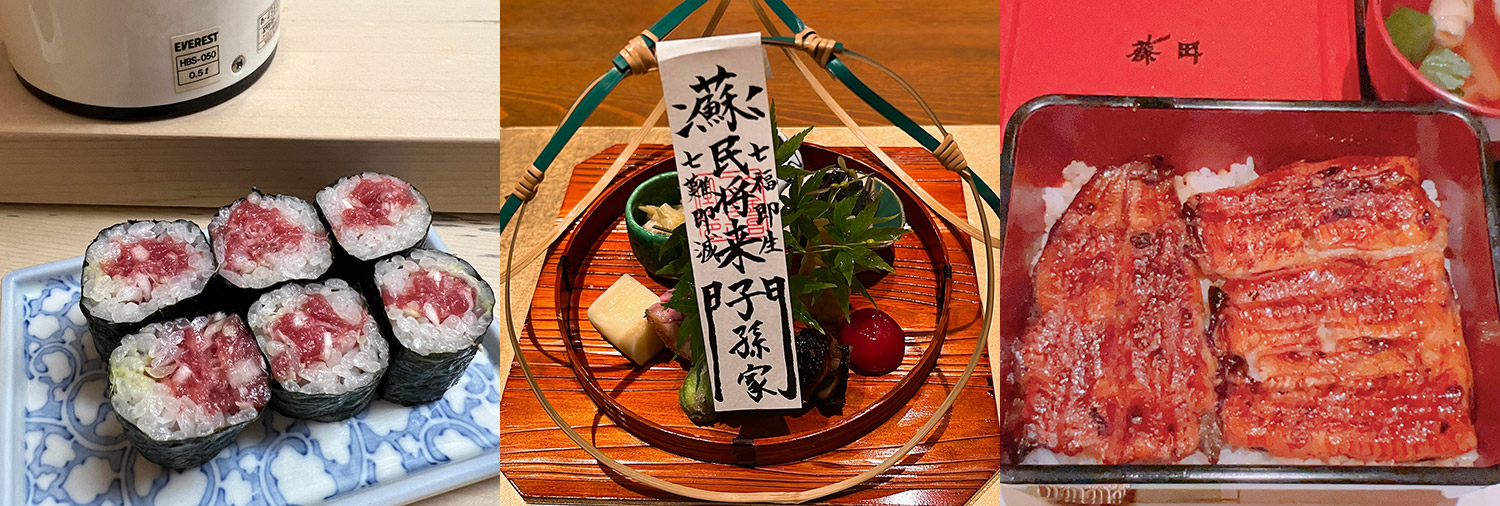 EVEREST
HBS-050
0.5ℓ
七福即生
蘇民将来子孫家門
七難即滅